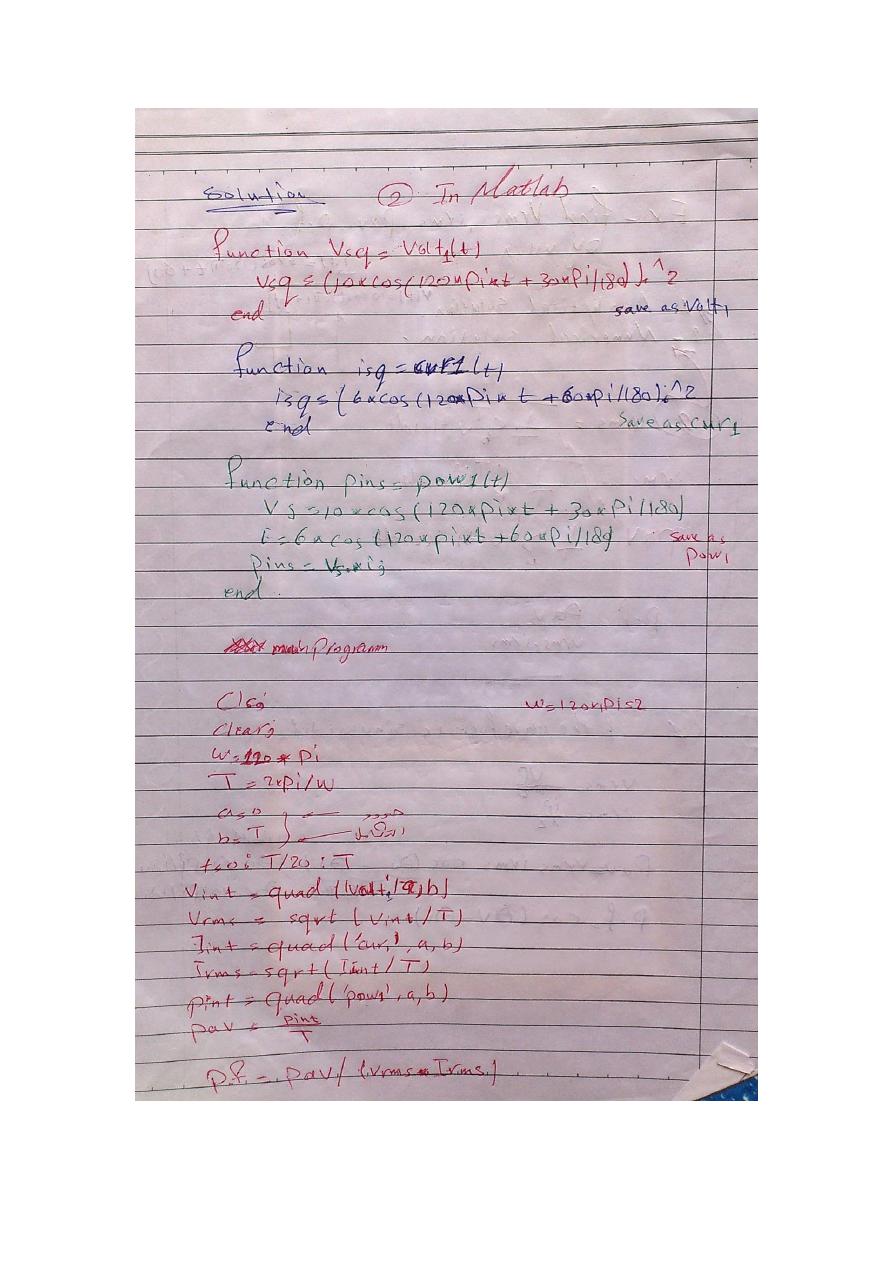 Solution ② In Matlab
function Vsq = Volt1(t)
Vsq = (10*cos(120*pi*t + 30*pi/180)).^2
end save as Volt1
function isq = cur1(t)
isq = (6*cos(120*pi*t + 60*pi/180)).^2
end save as cur1
function pins = pow1(t)
Vs = 10*cos(120*pi*t + 30*pi/180)
i = 6*cos(120*pi*t + 60*pi/180) save as
pow1
pins = Vs.*i;
end
main Programm
Clc;
Clear;
w = 120*pi
T = 2*pi/w
a=0 حدود
b=T التكامل
t=0: T/20 : T
Vint = quad('volt1', a,b)
Vrms = sqrt(Vint/T)
Iint = quad('cur1', a,b)
Irms = sqrt(Iint/T)
pint = quad('pow1', a,b)
pav = pint/T
p.f = pav/(Vrms*Irms)